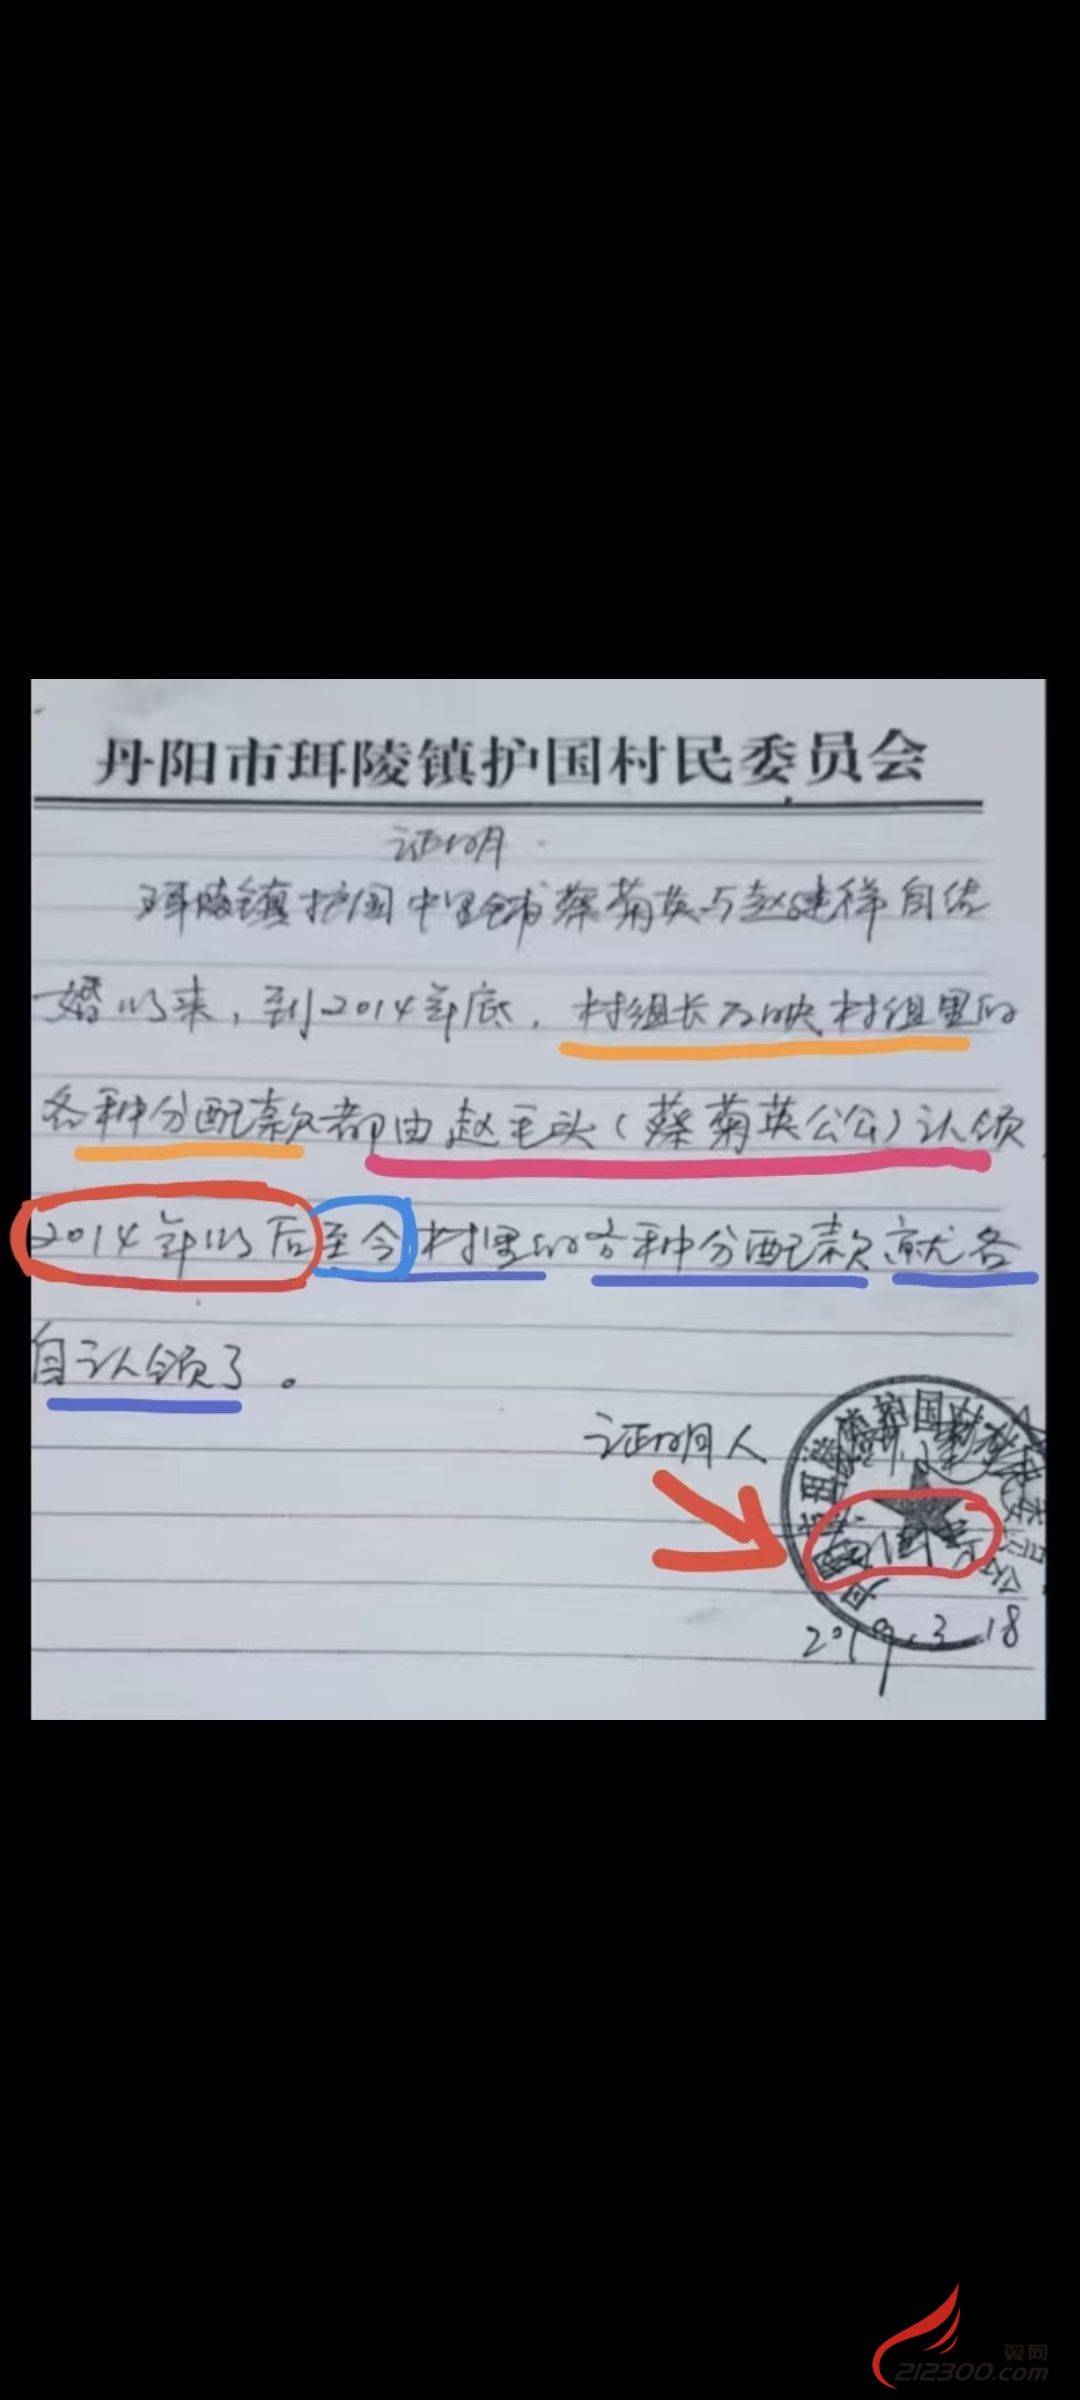 丹阳市珥陵镇护国村民委员会
证明
珥陵镇护国中里全村蔡菊英与赵建祥自结
婚以来，到2014年底，村组长反映村组里的
各种分配款都由赵毛头（蔡菊英公公）认领，
2014年以后至今村里的各种分配款就各
自认领了。
证明人
2019.3.18
翼网
212300.com